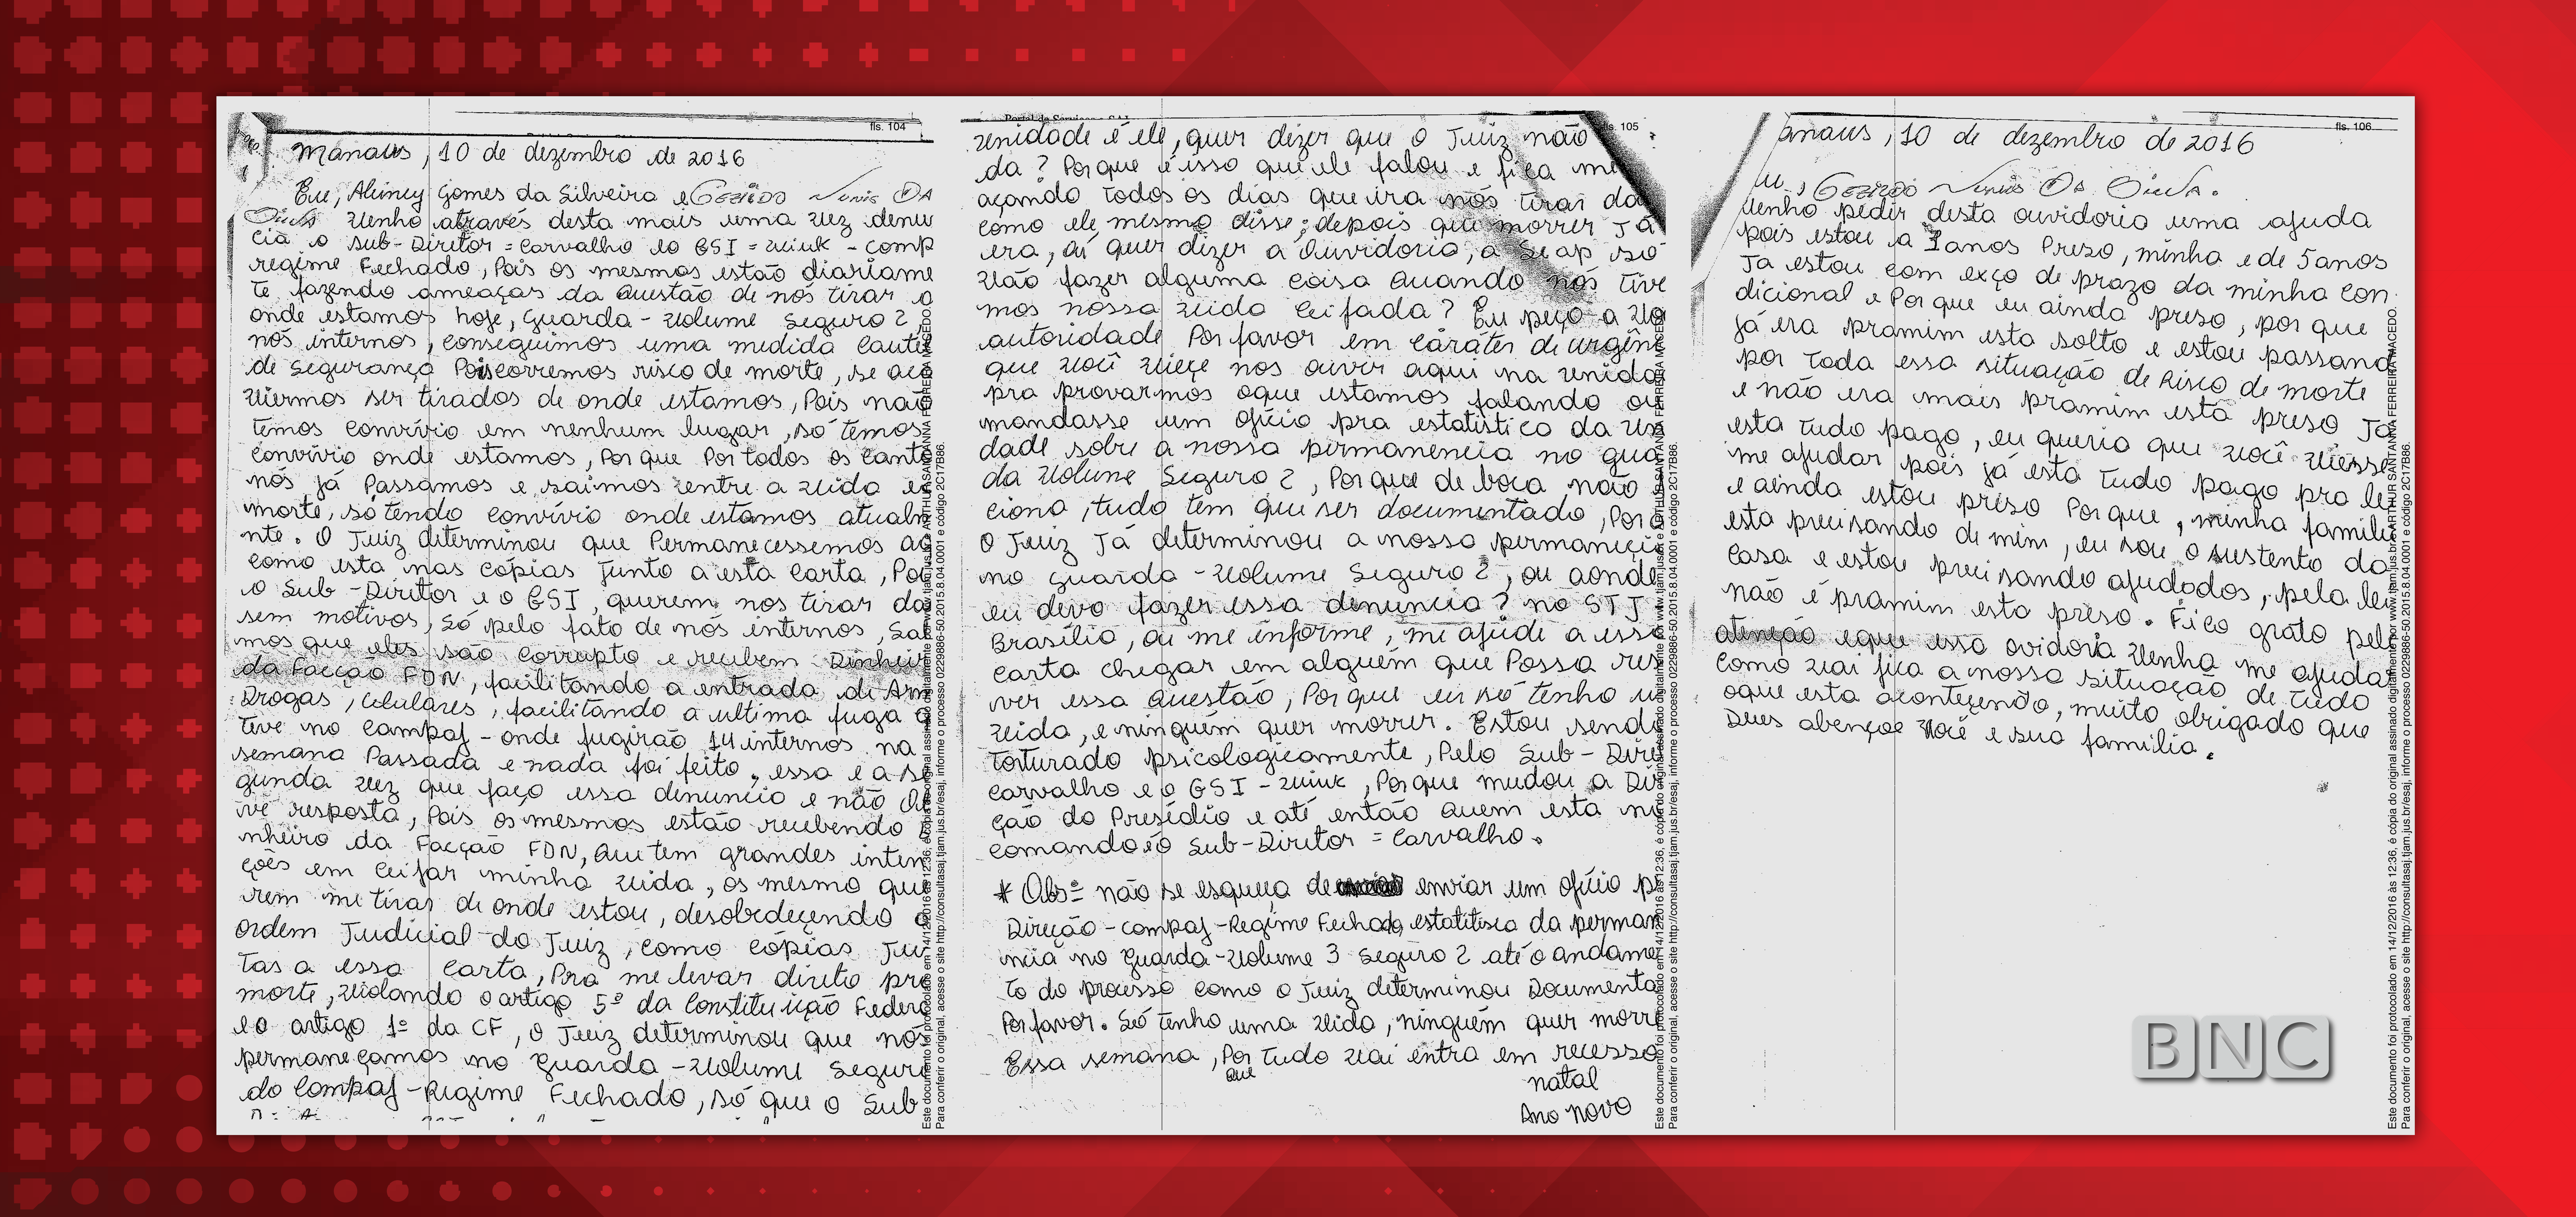 fls. 104
Manaus, 10 de dezembro de 2016
Eu, Aluney Gomes da Silveira e
venho através desta mais uma vez denu
cia o Sub-Diretor = Carvalho eo GSI = - comp
regime Fechado, Pois os mesmos estão diariame
te fazendo ameaças da Questão de nós tirar o
onde estamos hoje, guarda-volume Seguro 2,
nós internos, conseguimos uma medida Caute
de Segurança Pois corremos risco de morte, se aca
viermos ser tirados de onde estamos, Pois não
temos convívio em nenhum lugar, só temos
convívio onde estamos, Por que Por todos os Canto
nós já Passamos e saimos entre a vida ea
morte, só tendo convívio onde estamos atualm
nte. O Juiz determinou que Permanecessemos aq
como esta nas cópias junto a esta Carta, Por
o Sub-Diretor e o GSI, querem nos tirar da
sem motivos, Só pelo fato de nós internos, Sab
mos que eles são corrupto e recebem Dinheir
da Facção FDN, facilitando a entrada de Arm
Drogas, Celulares, facilitando a ultima fuga q
teve no Compaj - onde fugirão 14 internos na
semana Passada e nada foi feito, essa e a se
gunda vez que faço essa denuncia e não Ob
ive resposta, Pois os mesmos estão recebendo D
nheiro da Facção FDN, Que tem grandes inten
ções em Ceifar minha vida, os mesmo que
rem me tirar de onde estou, desobedeçendo a
ordem Judicial do Juiz, como cópias Jun
tas a essa Carta, Pra me levar direto pra
morte, violando o artigo 5º da Constituição Federa
e o artigo 1º da CF, o Juiz determinou que nós
permaneçamos no Guarda-Volume Seguro
do Compaj-Regime Fechado, só que o Sub
fls. 105
unidade é ele, quer dizer que o Juiz não
da? Porque é isso que ele falou e fica me
açando todos os dias que ira nós tirar da
como ele mesmo disse; depois que morrer Já
era, aí quer dizer a Ouvidoria, a Seap só
vão fazer alguma coisa Quando nós tive
mos nossa vida Ceifada? Eu peço a Vo
autoridade Por favor em Caráter de urgên
que você vieçe nos ouvir aqui na unida
pra provarmos oque estamos falando ou
mandasse um ofício pra estatística da Un
dade sobre a nossa permanencia no gua
da Volume Seguro 2, Porque de boca não
ciona, tudo tem que ser documentado, Por q
O Juiz Já determinou a nossa permanêcia
no guarda-Volume Seguro 2, ou aonde
eu devo fazer essa denuncia? no STJ
Brasília, ou me informe, me ajude a essa
carta chegar em alguém que Possa res
ver essa Questão, Porque eu só tenho u
vida, e ninguém quer morrer. Estou sendo
torturado psicologicamente, Pelo Sub-Dire
Carvalho e o GSI - , Porque mudou a Dir
ção do Presídio e até então Quem esta no
comando é o Sub-Diretor = Carvalho.
* Obs= não se esqueça de enviar um ofício pr
Direção-Compaj-Regime Fechado estatitisca da perman
ncia no Guarda-Volume 3 Seguro 2 até o andame
to do processo como o Juiz determinou Documenta
Por favor. Só tenho uma vida, ninguém quer morre
Essa semana, Por que tudo vai entra em recesso
natal
Ano novo
fls. 106
anaus, 10 de dezembro de 2016
venho pedir desta ouvidoria uma ajuda
pois estou a anos Preso, minha e de 5 anos
Ja estou com exço de prazo da minha Con
dicional e Por que eu ainda preso, por que
já era pramim esta solto e estou passand
por toda essa situação de Risco de morte
e não era mais pramim está preso Ja
esta tudo pago, eu queria que você viesse
me ajudar pois já está tudo pago pra le
e ainda estou preso Porque, minha familia
esta precisando de mim, eu sou o sustento da
casa e estou precisando ajudados, pela lei
não é pramim esta preso. Fico grato pela
atenção eque essa ovidoria venha me ajuda
como vai fica a nossa situação de tudo
oque esta acontecendo, muito obrigado que
Deus abençoe você e sua familia.
Este documento foi protocolado em 14/12/2016 às 12:36, é cópia do original assinado digitalmente por ARTHUR SANT'ANNA FERREIRA MACEDO.
Para conferir o original, acesse o site http://consultasaj.tjam.jus.br/esaj, informe o processo 0229886-50.2015.8.04.0001 e código 2C17B86.
BNC